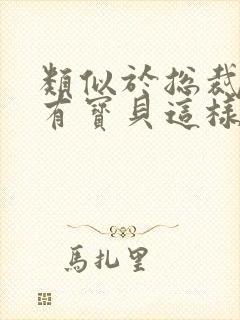 類似於总裁
有寶貝這樣
馬扎里